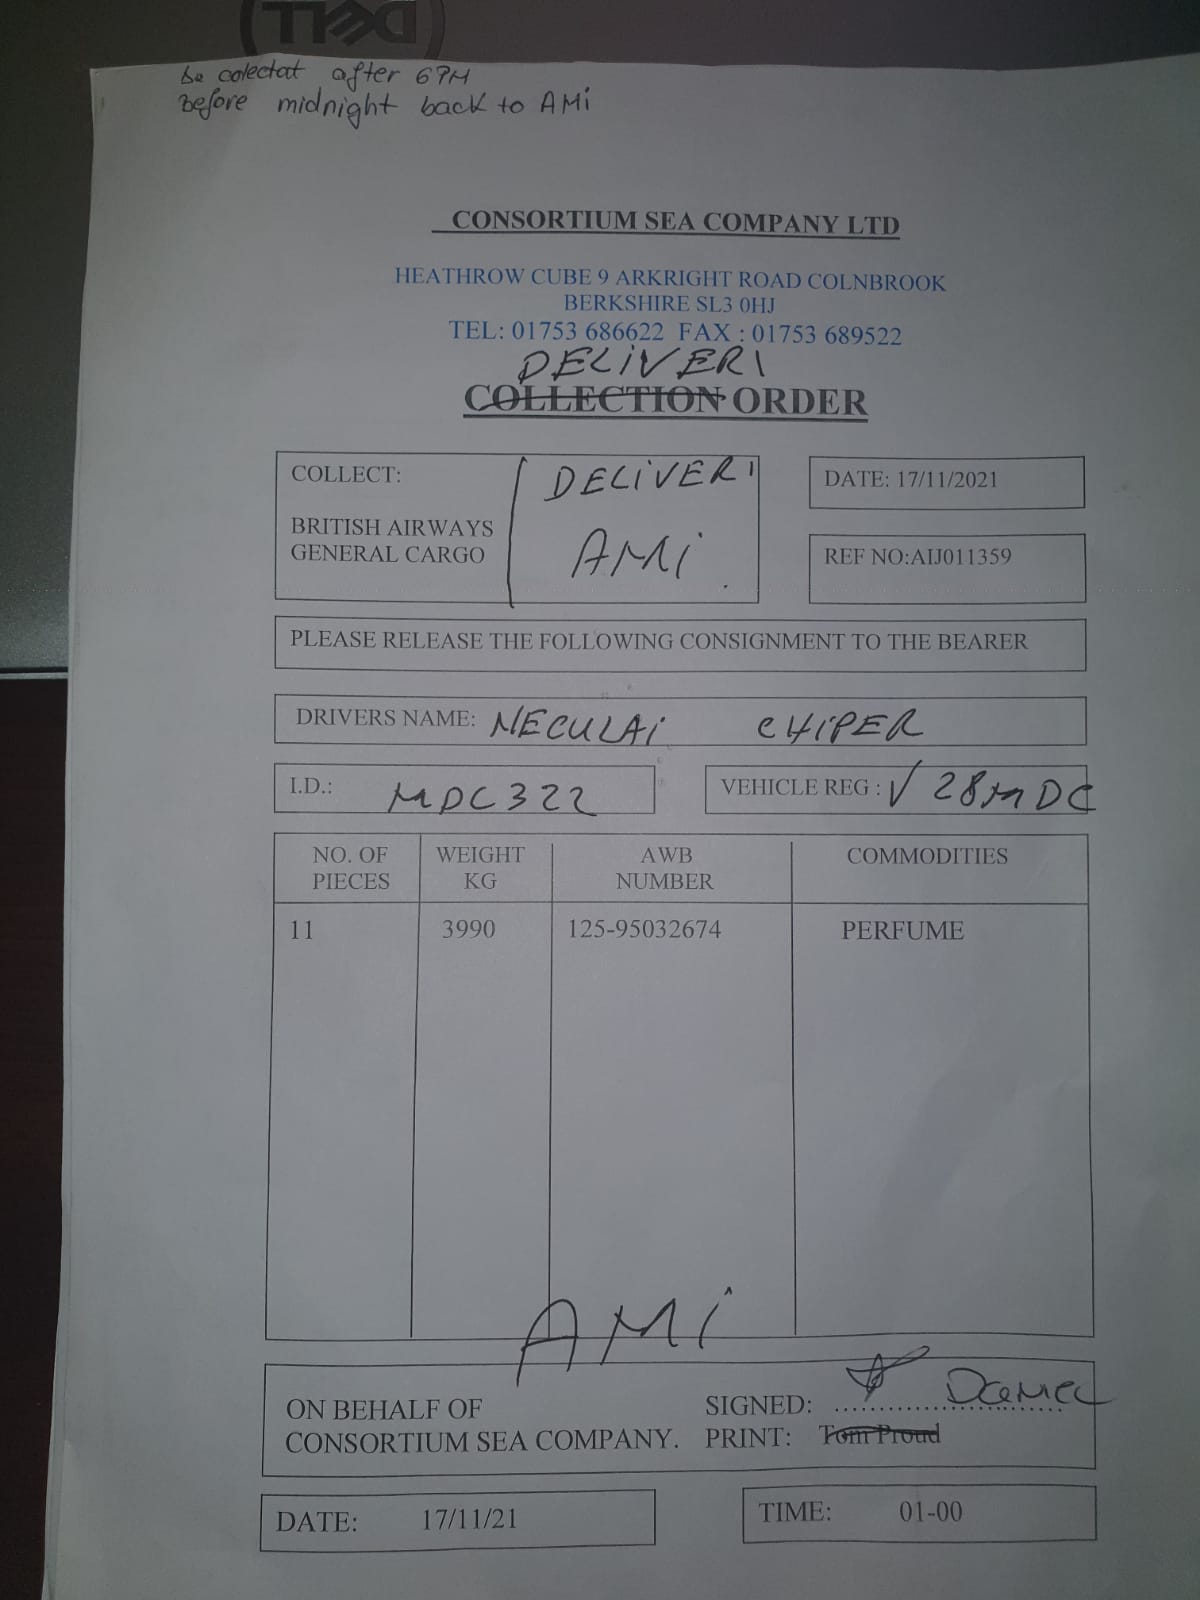 DELL
be colectat after 6PM
Before midnight back to AMi
CONSORTIUM SEA COMPANY LTD
HEATHROW CUBE 9 ARKRIGHT ROAD COLNBROOK
BERKSHIRE SL3 0HJ
TEL: 01753 686622 FAX : 01753 689522
DELiVERI
COLLECTION ORDER
COLLECT:
BRITISH AIRWAYS
GENERAL CARGO
DELiVERI
AMi
DATE: 17/11/2021
REF NO:AIJ011359
PLEASE RELEASE THE FOLLOWING CONSIGNMENT TO THE BEARER
DRIVERS NAME: NECULAi CHiPER
I.D.: MDC322
VEHICLE REG : V28MDC
NO. OF PIECES WEIGHT KG AWB NUMBER COMMODITIES
11 3990 125-95032674 PERFUME
AMi
ON BEHALF OF
CONSORTIUM SEA COMPANY.
SIGNED: Daniel
PRINT: Tom Proud
DATE: 17/11/21
TIME: 01-00